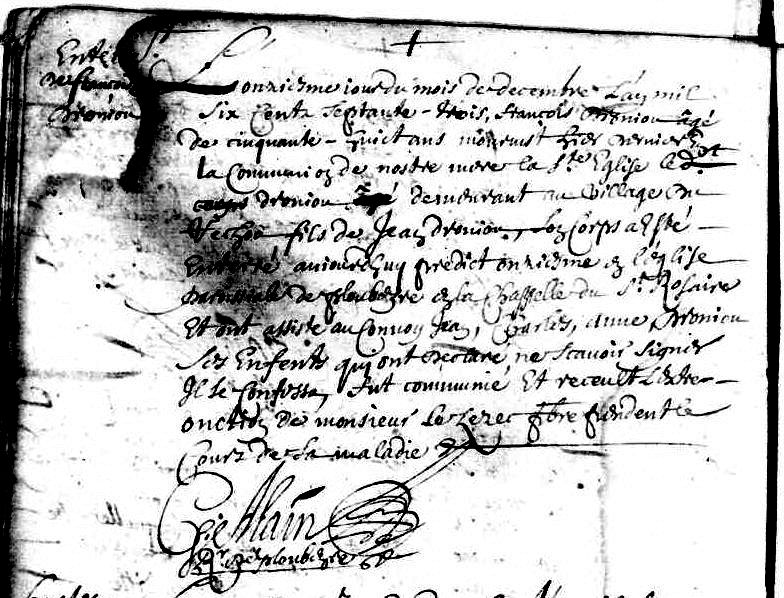 Enter
de francois
droniou
Le onziesme iour du mois de decembre L'an mil
Six Centz Septante-trois, francois droniou agé
de cinquante-huict ans mourust hier dernier en
la Communion de nostre mere la Ste Eglise le dt
corps droniou demeurant au village du
fils de Jean droniou, son Corps a esté
Enterré aujourdhuy predict onziesme en l'église
parrossiale de ploubezre en la Chappelle du St Rosaire
Et ont assisté au Convoy Jean, Charles, anne droniou
Ses Enfents qui ont declaré ne scavoir signer
Il se Confessa, fut communié Et receult L'extre-
onction de monsieur Le pbre pendent le
Cours de sa maladie
Alain
de ploubezre